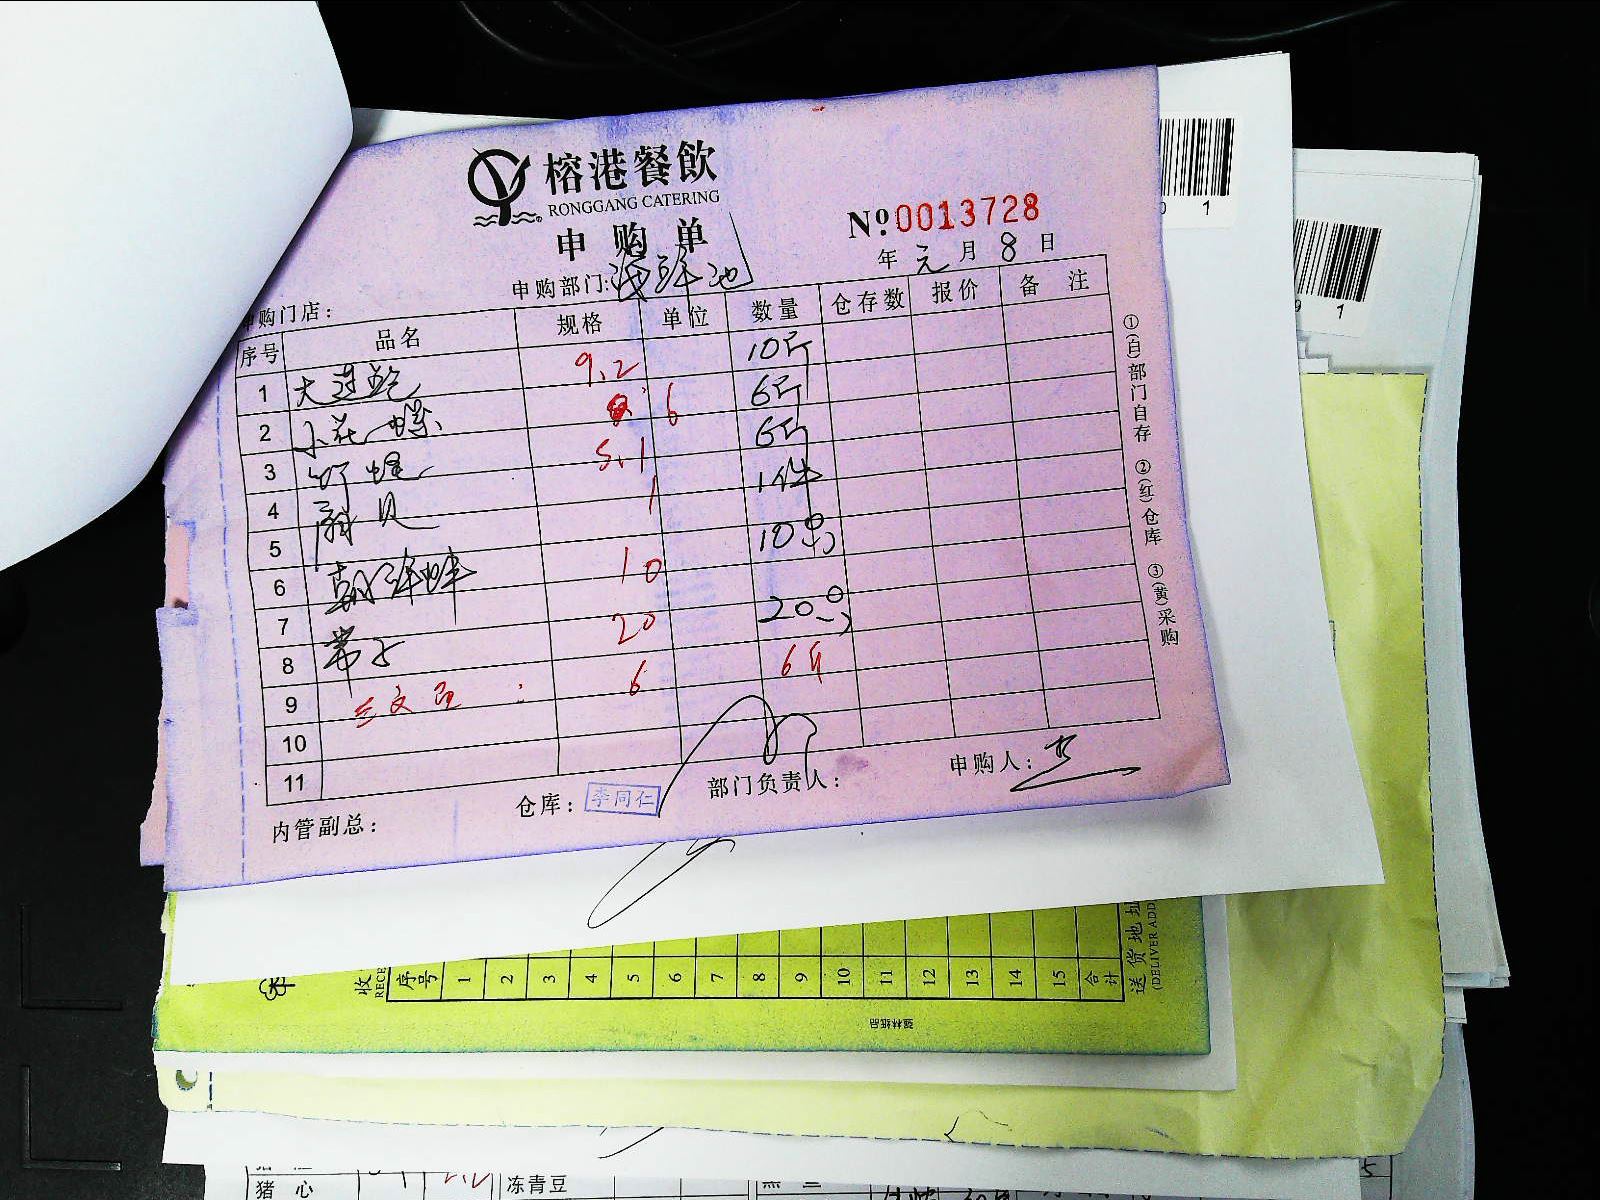 榕港餐飲
RONGGANG CATERING
申购单
№ 0013728
年 元 月 8 日
申购部门: 海鲜池
申购门店:
序号 品名 规格 单位 数量 仓存数 报价 备 注
1 大连鲍 9.2 10斤
2 小花螺 6 6斤
3 竹蛏 5.1 6斤
4 扇贝 1 1件
5 10
6 10
7 20
8 带子 20
9 三文 6 6斤
10
11
内管副总: 仓库: 李同仁 部门负责人: 申购人:
①(白)部门自存 ②(红)仓库 ③(黄)采购
1
1
收
RECE
序号 1 2 3 4 5 6 7 8 9 10 11 12 13 14 15 合计
送货地址
(DELIVER ADD
猪 心 冻青豆